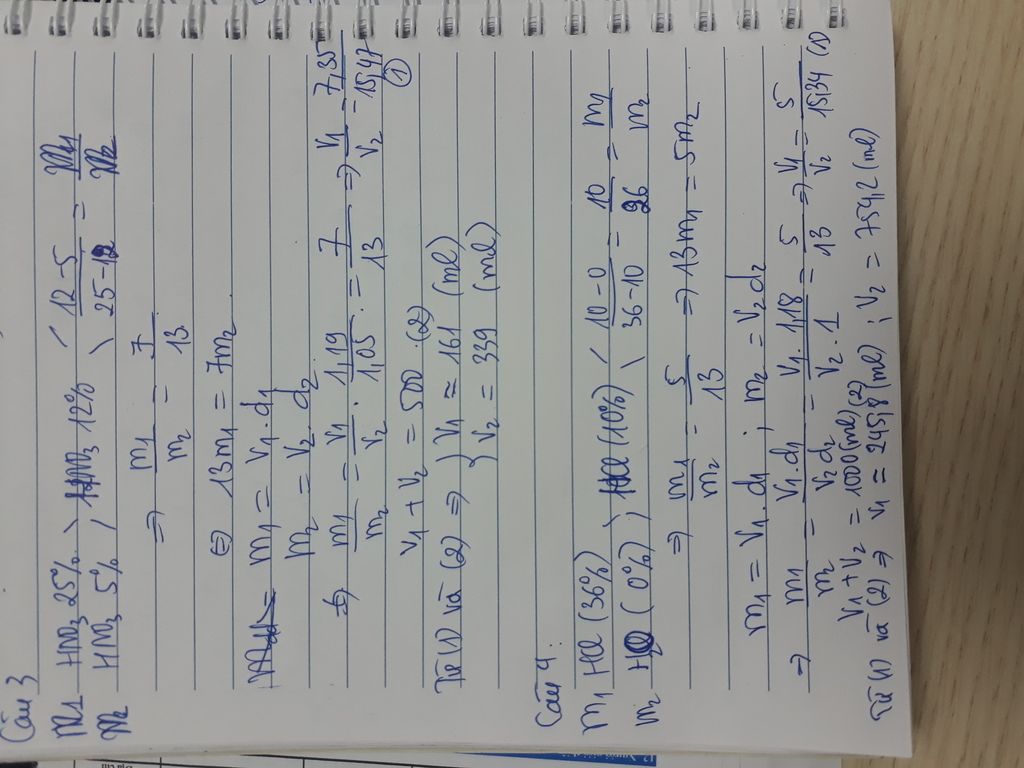 Câu 3
m1 HNO3 25% \ HNO3 12% / 12-5 / 25-12 = m1/m2
m2 HNO3 5% / \
=> m1/m2 = 7/13
<=> 13m1 = 7m2
m1 = V1.d1
m2 = V2.d2
=> m1/m2 = V1/V2 . 1,19/1,05 = 7/13 => V1/V2 = 7,35/15,47 (1)
V1 + V2 = 500 (2)
Từ (1) và (2) => { V1 ≈ 161 (ml)
{ V2 = 339 (ml)
Câu 4:
m1 HCl (36%) \ HCl (10%) / 10-0 / 36-10 = 10/26 = m1/m2
m2 HCl (0%) / \
=> m1/m2 = 5/13 => 13m1 = 5m2
m1 = V1.d1 ; m2 = V2d2
=> m1/m2 = V1.d1/V2d2 = V1.1,18/V2.1 = 5/13 => V1/V2 = 5/15,34 (1)
V1 + V2 = 1000 (ml) (2)
Từ (1) và (2) => V1 ≈ 245,8 (ml) ; V2 = 754,2 (ml)